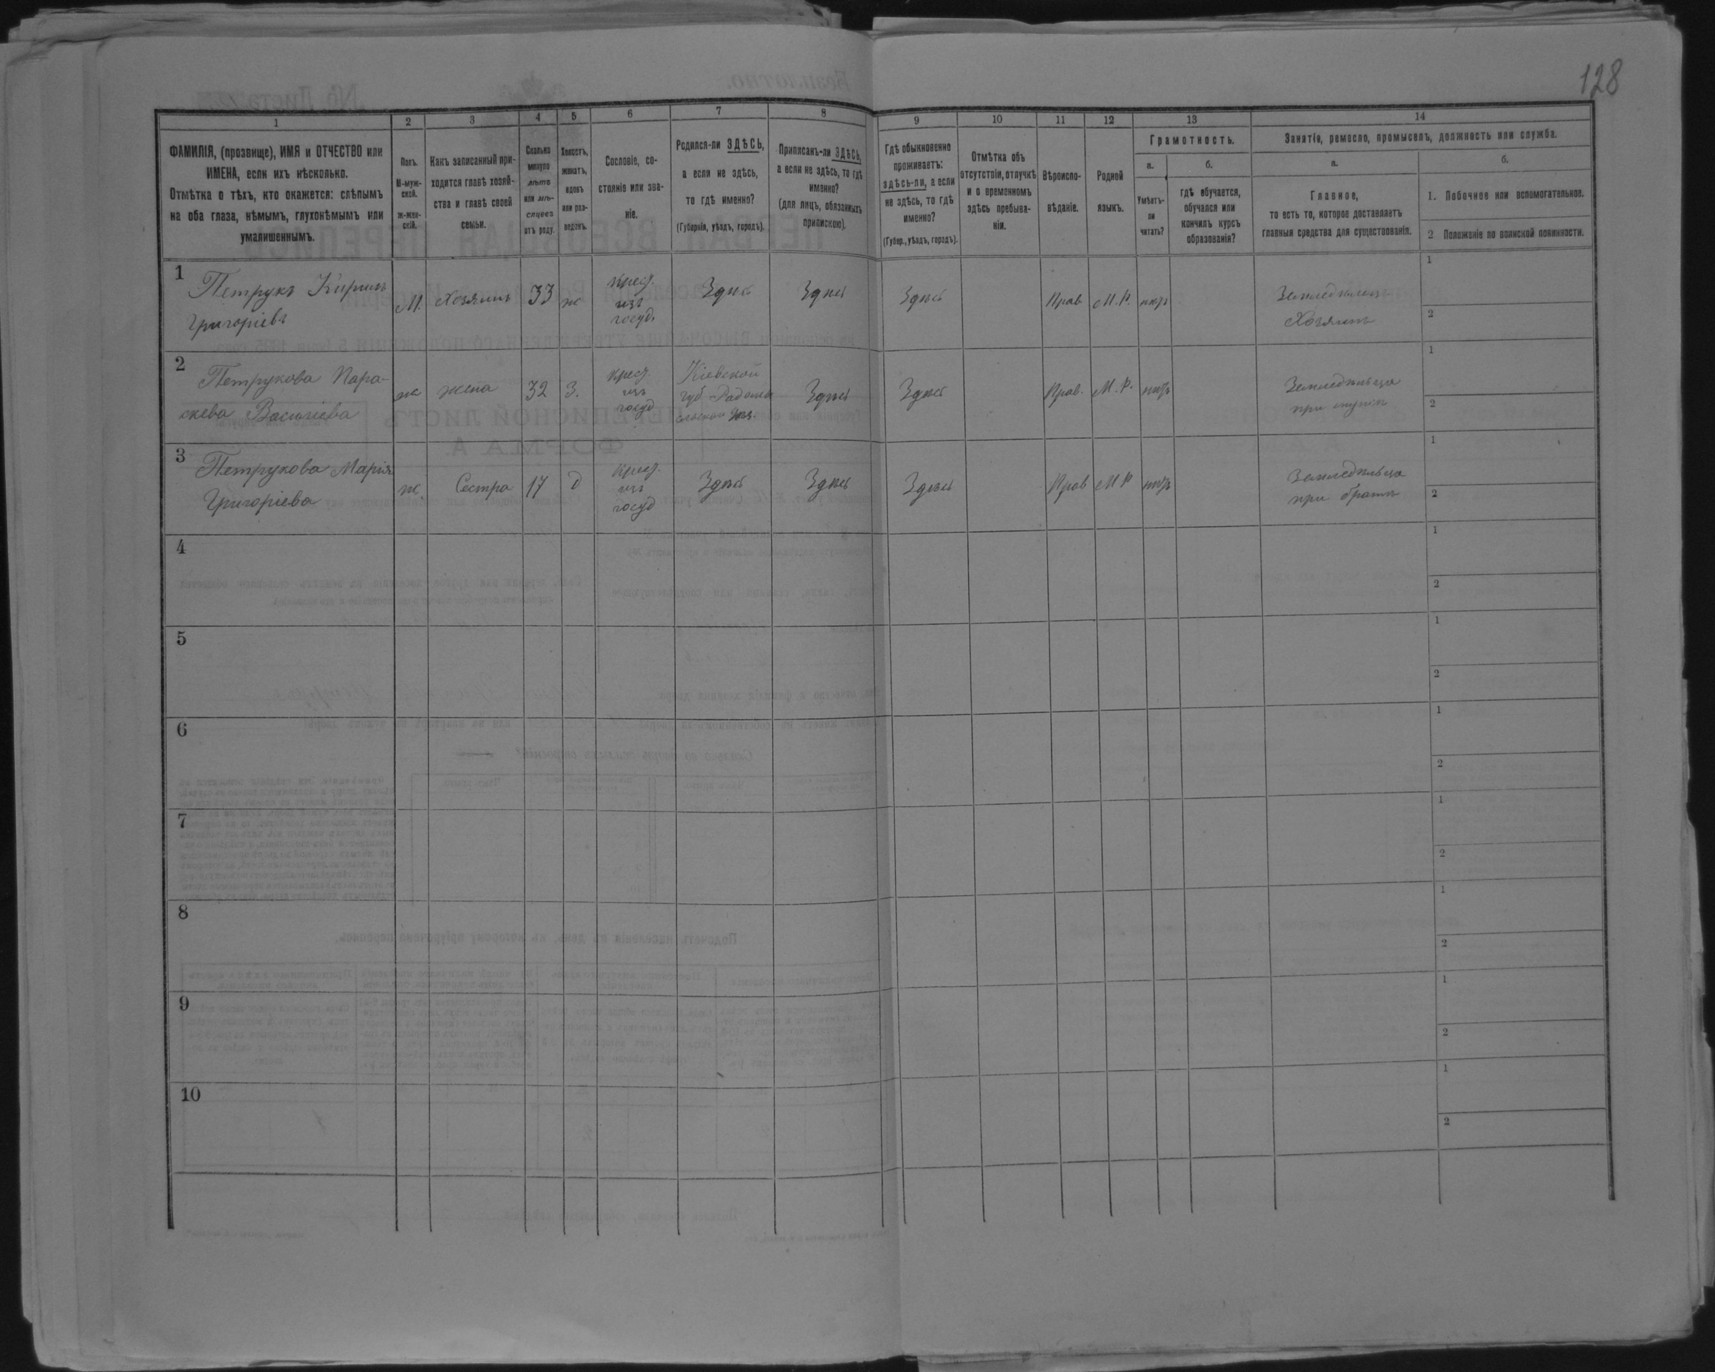 128
1 2 3 4 5 6 7 8 9 10 11 12 13 14
ФАМИЛІЯ, (прозвище), ИМЯ и ОТЧЕСТВО или
ИМЕНА, если ихъ нѣсколько.
Отмѣтка о тѣхъ, кто окажется: слѣпымъ
на оба глаза, нѣмымъ, глухонѣмымъ или
умалишеннымъ.
Полъ.
М-муж-
ской.
Ж-жен-
скій.
Какъ записанный при-
ходится главѣ хозяй-
ства и главѣ своей
семьи.
Сколько
минуло
лѣтъ
или мѣ-
сяцевъ
отъ роду.
Холостъ,
женатъ,
вдовъ
или раз-
веденъ.
Сословіе, со-
стояніе или зва-
ніе.
Родился-ли ЗДѢСЬ,
а если не здѣсь,
то гдѣ именно?
(Губернія, уѣздъ, городъ).
Приписанъ-ли ЗДѢСЬ,
а если не здѣсь, то гдѣ
именно?
(для лицъ, обязанныхъ
припискою).
Гдѣ обыкновенно
проживаетъ:
здѣсь-ли, а если
не здѣсь, то гдѣ
именно?
(Губер., уѣздъ, городъ).
Отмѣтка объ
отсутствіи, отлучкѣ
и о временномъ
здѣсь пребыва-
ніи.
Вѣроиспо-
вѣданіе.
Родной
языкъ.
Грамотность.
а.
Умѣетъ-
ли
читать?
б.
гдѣ обучается,
обучался или
кончилъ курсъ
образованія?
Занятіе, ремесло, промыселъ, должность или служба.
а.
Главное,
то есть то, которое доставляетъ
главныя средства для существованія.
б.
1. Побочное или вспомогательное.
2 Положеніе по воинской повинности.
1
Петрукъ Кирилъ
Григоріевъ
М. Хозяинъ 33 ж
крест.
изъ
госуд.
Здѣсь Здѣсь Здѣсь Прав М.Р. нѣтъ
Земледѣлецъ
Хозяинъ
1
2
2
Петрукова Пара-
скева Василіева
ж жена 32 З.
крест.
изъ
госуд
Кіевской
губ.
Здѣсь Здѣсь Прав. М.Р. нѣтъ
Земледѣлица
при мужѣ
1
2
3
Петрукова Марія
Григоріева
ж. Сестра 17 д
крест.
изъ
госуд
Здѣсь Здѣсь Здѣсь Прав М.Р нѣтъ
Земледѣлица
при братѣ
1
2
4
1
2
5
1
2
6
1
2
7
1
2
8
1
2
9
1
2
10
1
2